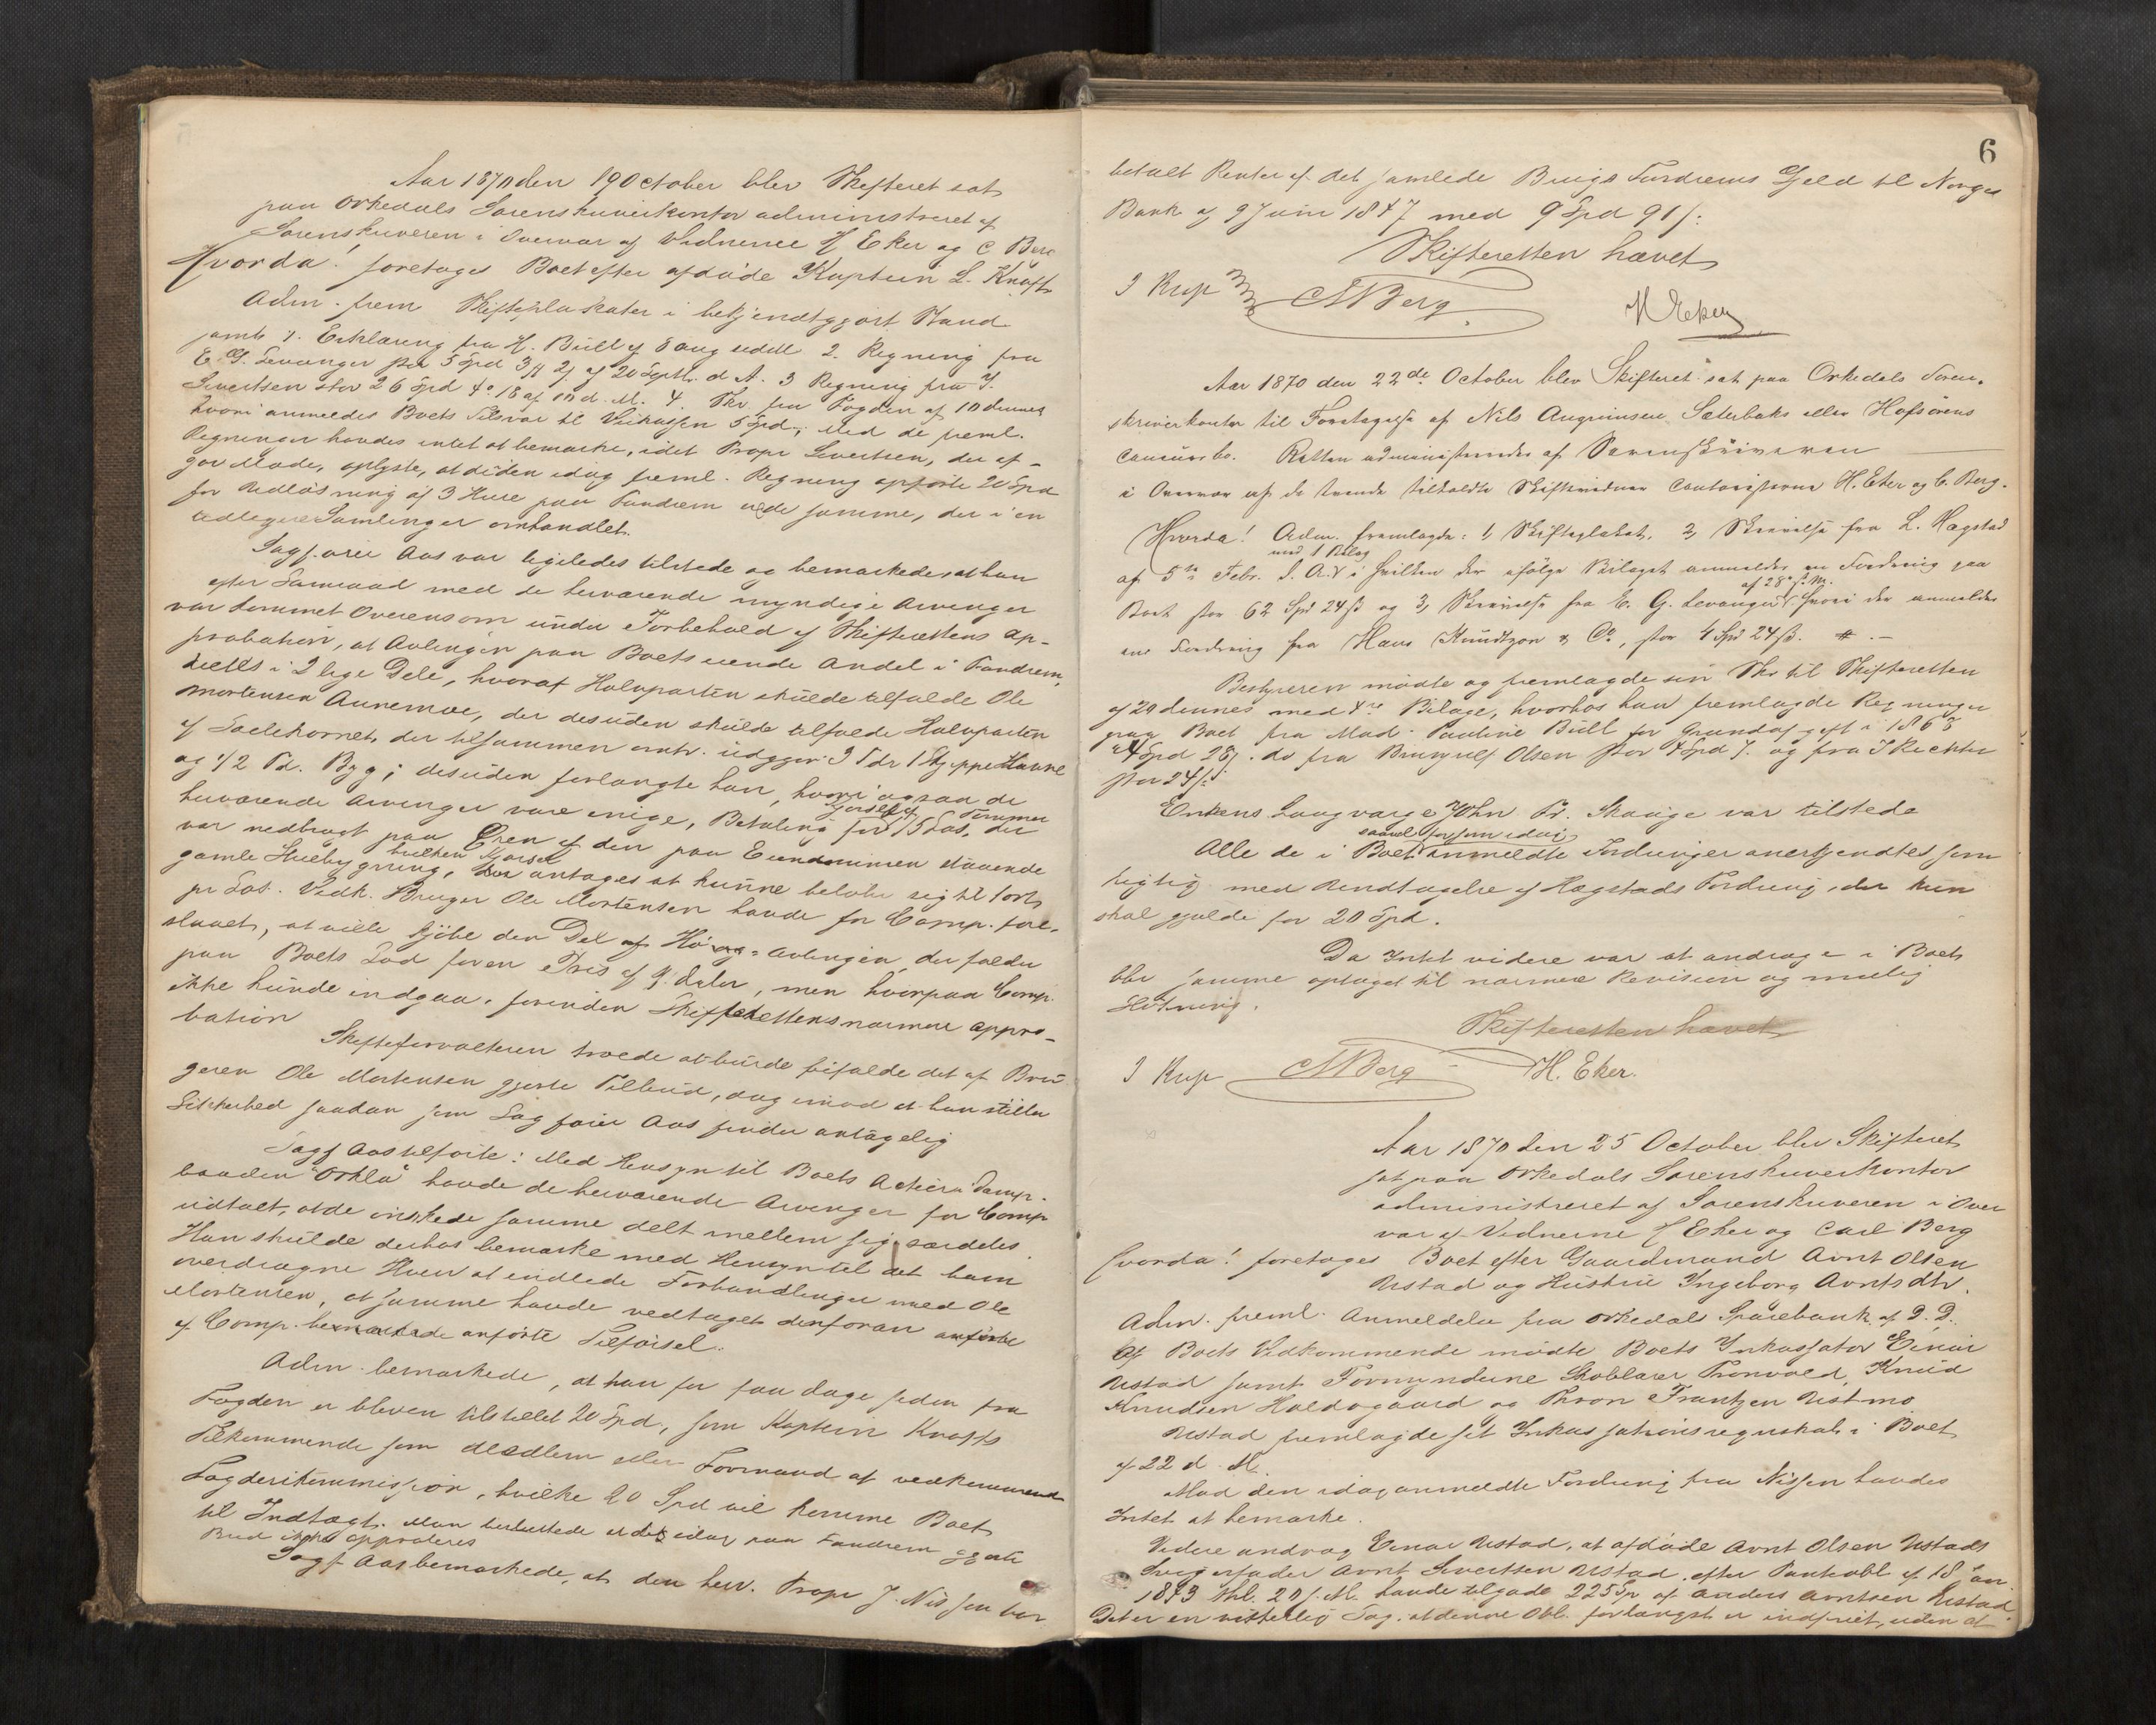 Aar 1870 den 19 October blev Skifteret sat
paa Orkedals Sorenskriverkontor administreret af
Sorenskriveren i Overvær af Vidnerne H Eker og C Berg
Hvorda! foretages Boet efter afdøde Kaptein L. Knoff
Adm. frem Skifteplakater i bekjendtgjort Stand
samt 1. Erklæring fra H. Bull af 8 aug sidstl 2. Regning fra
E. G. Levanger stor 5 Spd 3 ß af 20 Septb. d. A. 3 Regning fra J.
Sivertsen stor 26 Spd 4 18 af 10 d. M. 4. Skr. fra Fogden af 10 dennes
hvori anmeldes Boets Tilsvar til Veikassen 5 Spd; Med de freml.
Regninger havdes intet at bemærke, idet Propr Sivertsen, der af-
gav Møde, oplyste, at di den idag freml. Regning opførte 20 Spd
for Indløsning af 3 Huse paa Fandrem er de samme, der i en
tidligere Samlinger omhandlet.
Sagfører Aas var ligeledes tilstede og bemærkede, at han
efter Samraad med de herværende myndige Arvinger
var kommet overens om under Forbehold af Skifterettens ap-
probation, at Avlingen paa Boets eiende Andel i Fandrem,
deeltes i 2 lige Dele, hvoraf Halvparten skulde tilfalde Ole
Mortensen Aunemoe, der desuden skulde tilfalde Halvparten
af Sædekornet, der tilsammen omtr. udgjør 3 Tdr 1 Skjeppe Havre
og 1/2 Td. Byg; desuden forlangte han, hvori ogsaa de
herværende Arvinger vare enige, Betaling for Kjørsel af 15 Læs Tømmer, der
var nedbragt paa Øren af den paa Eiendommen staaende
gamle Huebygning, hvilken Kjørsel antages at kunne beløbe sig til 1 ort
pr Læs. Vedk. Bruger Ole Mortensen havde for Comp. fore-
slaaet, at ville kjøbe den Del af Hø-avlingen, der falder
paa Boets Lod for en Pris af 9 daler, men hvorpaa Comp.
ikke kunde indgaa, forinden Skifterettens nærmere appro-
bation
Skifteforvalteren troede at burde bifalde det af Bru-
geren Ole Mortensen gjorte Tilbud, dog imod at han stiller
Sikkerhed saadan som Sagfører Aas finder antagelig
Sagf Aas tilførte: Med Hensyn til Boets Actier i Damp-
baaden "Orkla" havde de herværende Arvinger for Comp
udtalt, at de ønskede samme delt mellem sig særdeles.
Han skulde derhos bemærke med Hensyn til det ham
overdragne Hverv at indlede Forhandlinger med Ole
Mortensen, at samme havde vedtaget denforan anførte
af Comp. bemærkede anførte Tilførsel.
Adm. bemærkede, at han for faa dage siden fra
Fogden er bleven tilstillet 20 Spd, som Kaptein Knoffs
Tilkommende som Medlem eller Formand af vedkommende
Lagdeskommission, hvilke 20 Spd vil komme Boet
til Indtægt. Man besluttede at det idag paa Fandrem gjorte
Bud ikke approberes
Sagf Aas bemærkede, at den herv. Propr J. Nissen har
6
betalt Renter af det samlede Brugs Fandrems Gjeld til Norges
Bank af 9 Juni 1847 med 9 Spd 91 ß.
Skifteretten hævet
J Krup CM Berg H Eker
Aar 1870 den 22de October blev Skifteret sat paa Orkedals Soren-
skriverkontor til Foretagelse af Nils Angrimsen Sæterbaks eller Hofsørens
Concursbo. Retten administreredes af Sorenskriveren
i Overvær af de tvende tilkaldte Skiftevidner Contoristerne H. Eker og C. Berg.
Hvorda! Adm. fremlagde: 1, Skifteplakat, 2, Skrivelse fra L. Hagstad
med 1 Bilag
af 5te Febr. d. A. i hvilken der ifølge Bilaget anmeldes en Fordring paa
Boet stor 62 Spd 24 ß og 3, Skrivelse fra E. G. Levanger af 28 f. M. hvori der anmeldes
en Fordring fra Hans Knudtzon & Co, stor 4 Spd 24 ß.
Bestyreren mødte og fremlagde sin Skr til Skifteretten
af 20 dennes med 4re Bilage, hvorhos han fremlagde Regninger
paa Boet fra Mad. Pauline Bull for Grundafgift i 1868
4 Spd 28 ß. do fra Brynjulf Olsen stor 4 Spd ß. og fra J Richter
stor 24 ß.
Enkens Laugværge John Pr. Skauge var tilstede
saavel før som idag
Alle de i Boet anmeldte Fordringer anerkjendtes som
rigtig med Undtagelse af Hagstads Fordring, der kun
skal gjælde for 20 Spd.
Da Intet videre var at andrage i Boet
blev samme optaget til nærmere Revision og mulig
Slutning.
Skifteretten hævet
J Krup CM Berg H. Eker.
Aar 1870 den 25 October blev Skifteret
sat paa Orkedals Sorenskriverkontor
administreret af Sorenskriveren i Over
vær af Vidnerne H Eker og Carl Berg
Hvorda! foretages Boet efter Gaardmand Arnt Olsen
Ustad og Hustru Ingeborg Arntsdtr.
Adm. freml. Anmeldelse fra Orkedals Sparebank af D. D.
Af Boets Vedkommende mødte Boets Inkassator Einar
Ustad samt Formynderne Skolelærer Tronvold, Knud
Knudsen Holdagaard og Thron Frantzen Ustmo
Ustad fremlagde sit Inkassationsregnskab i Boet
af 22 d. M.
Mod den idag anmeldte Fordring fra Nissen havdes
Intet at bemærke.
Videre androg Einar Ustad, at afdøde Arnt Olsen Ustads
Svigerfader Arnt Sivertsen Ustad, efter Pantobl af 18 Jan.
1853 thl. 20 s. M. havde tilgode 225 Sp af Anders Arntsen Ustad.
Det er en vitterlig Sag, at denne Obl. forlængst er indfriet, uden at